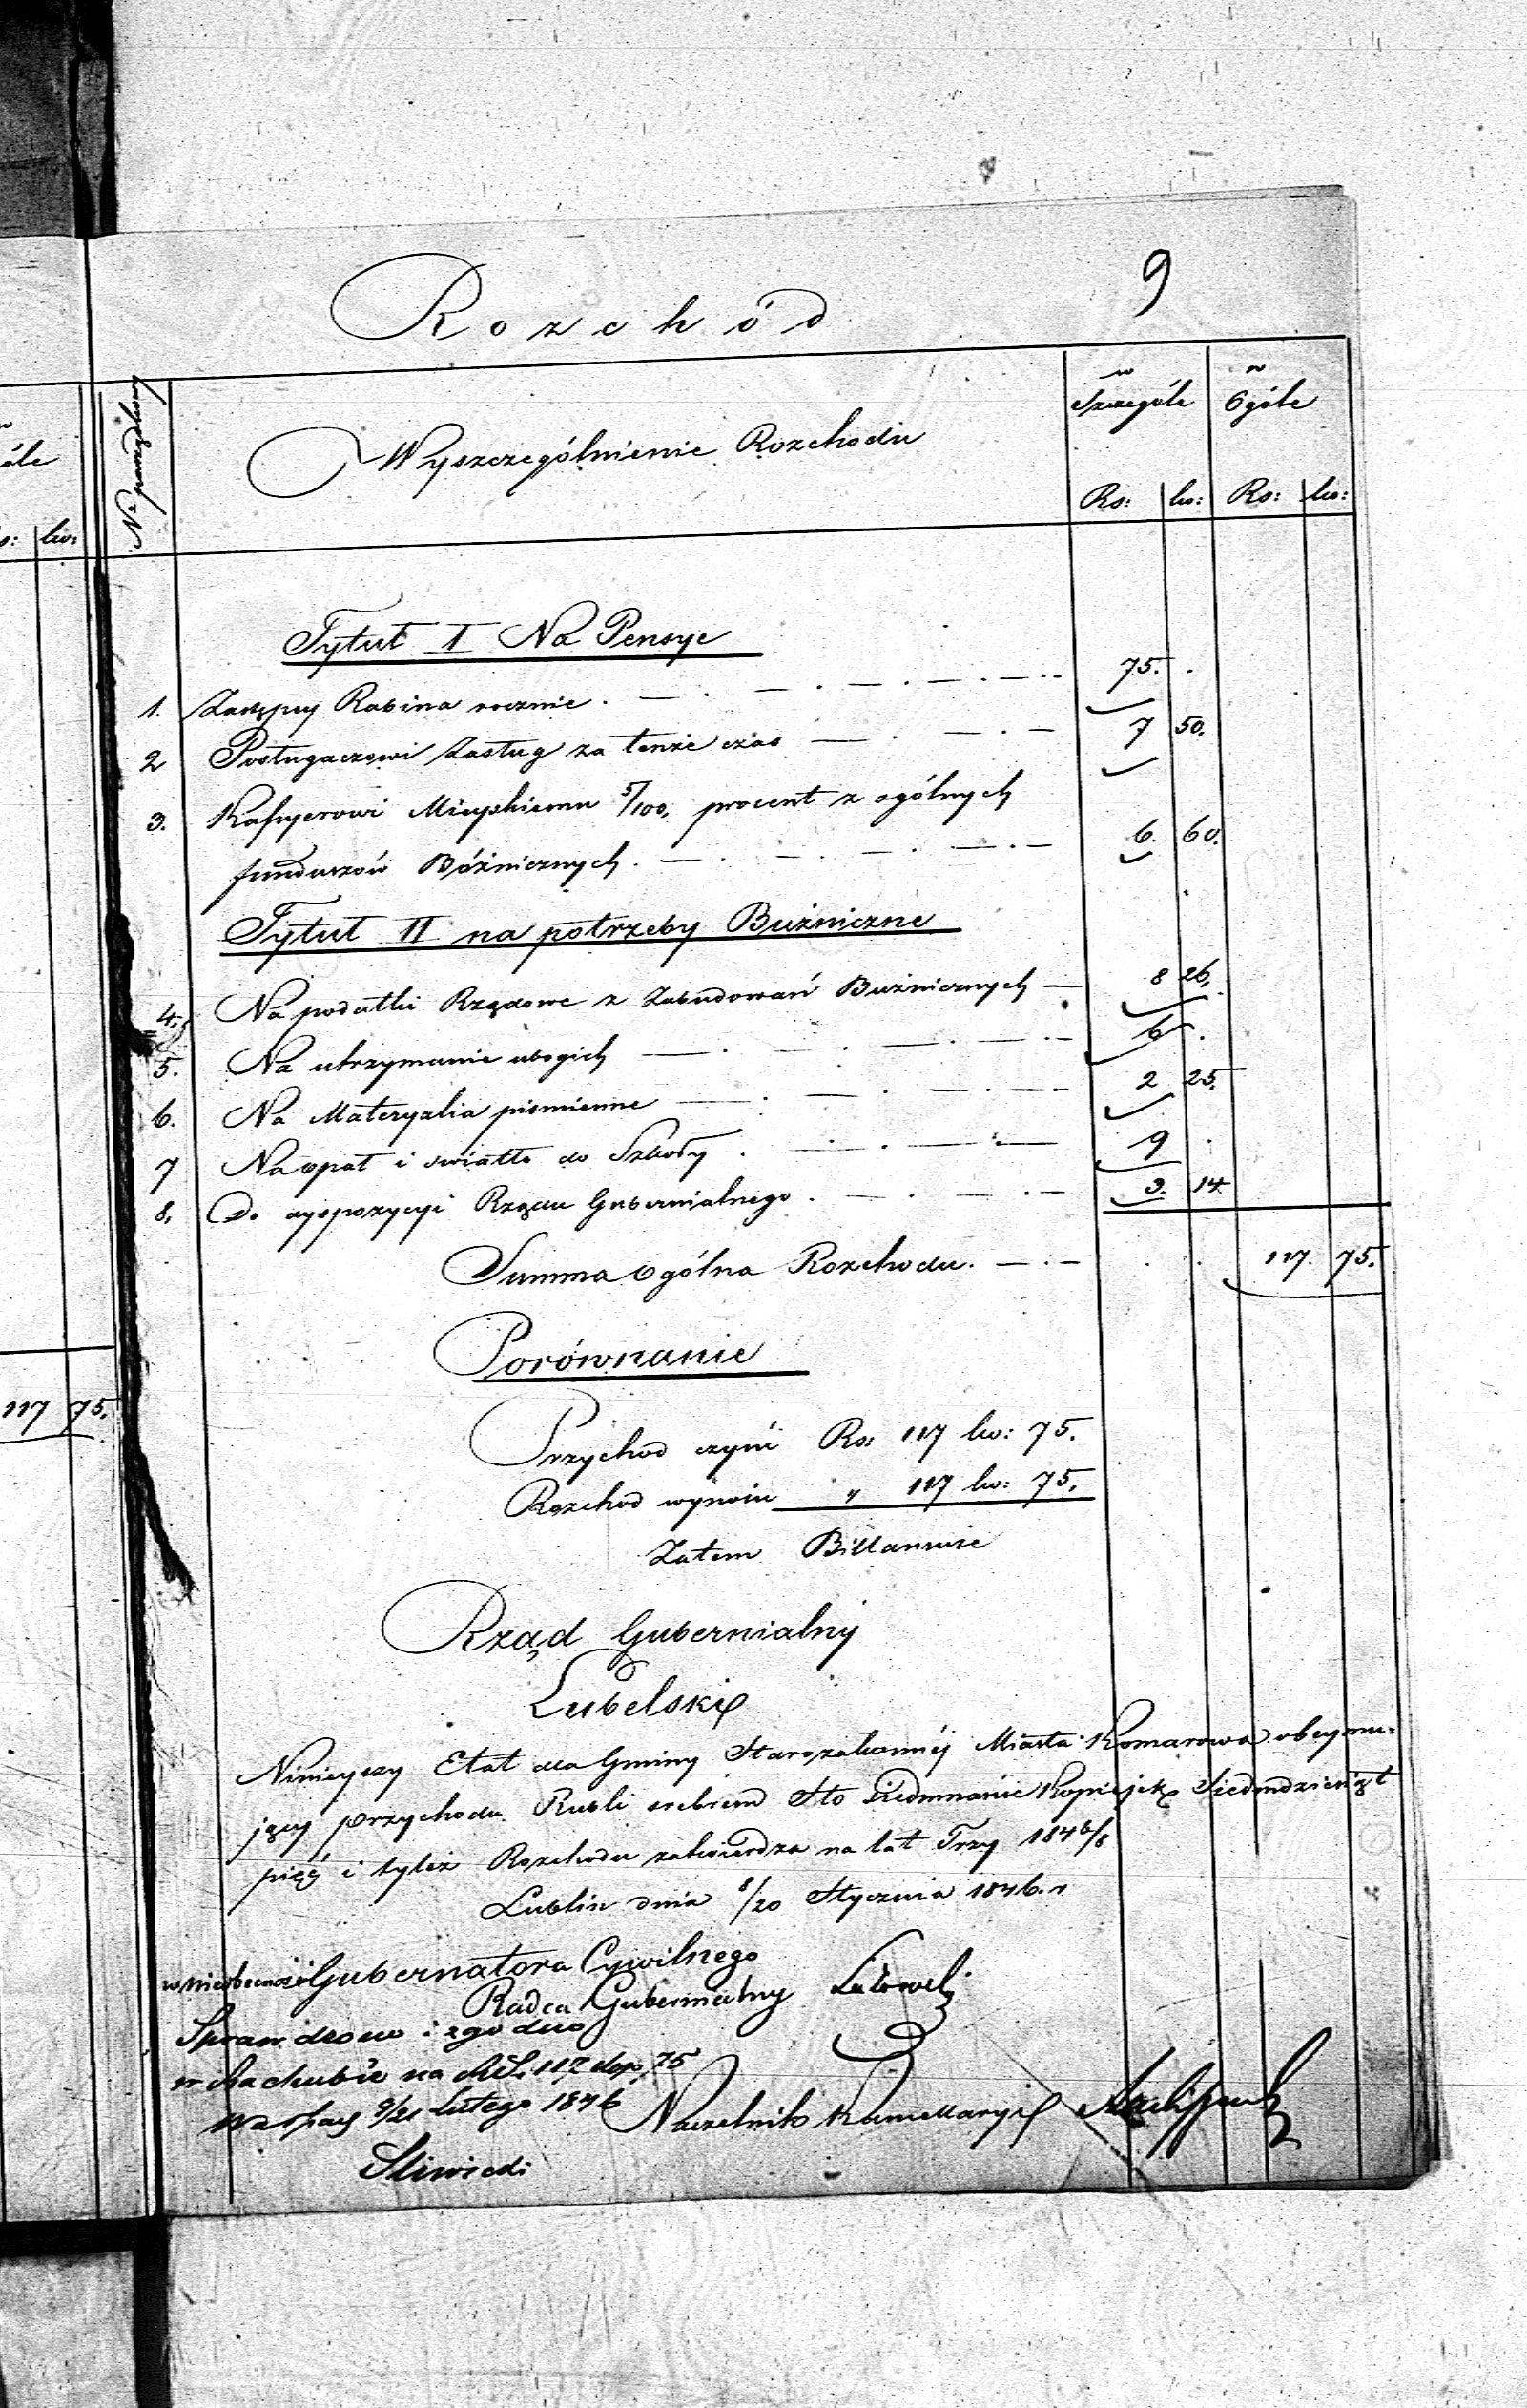 9
Rozchód
No porządkowy
Wyszczególnienie Rozchodu
w Szczególe
w Ogóle
Rs: ko: Rs: ko:
óle
s: ko:
Tytuł I Na Pensye
1. Zastępcy Rabina rocznie . — . — . — . — . — .. 75. .
2 Posługaczowi Zasług za tenże czas — . — . — 7 50.
3. Kassyerowi Mieyskiemu 5/100, procent z ogólnych
funduszów Bóżnicznych . — . — . — . — . — 6. 60.
Tytuł II na potrzeby Bużniczne
4. Na podatki Rządowe z Zabudowań Bużnicznych — 8 26.
5. Na utrzymanie ubogich — . — . — . — .. 6 .
6. Na Materyalia pismienne — . — . — . — 2 25.
7 Na opał i swiatło do Szkoły . — . — . — 9 .
8. Do dyspozycyi Rządu Gubernialnego . — . — . — 3. 14.
Summa ogólna Rozchodu . — . — 117. 75.
117 75.
Porównanie
Przychod czyni Rs: 117 ko: 75.
Rozchod wynosi " 117 ko: 75.
Zatem Billansuie
Rząd Gubernialny
Lubelski
Ninieyszy Etat dla Gminy Starozakonnéj Miasta Komarowa obeymu-
jący przychodu Rubli srebrem Sto Siedmnaście Kopiejek Siedmdziesiąt
pięć i tyleż Rozchodu zatwierdza na lat Trzy 1846/8
Lublin dnia 8/20 Stycznia 1846. r
w nieobecności Gubernatora Cywilnego
Radca Gubernialny
Sprawdzono i zgodno
w Rachubie na RS. 117 kop. 75
9/21 Lutego 1846
Naczelnik Kancellaryi